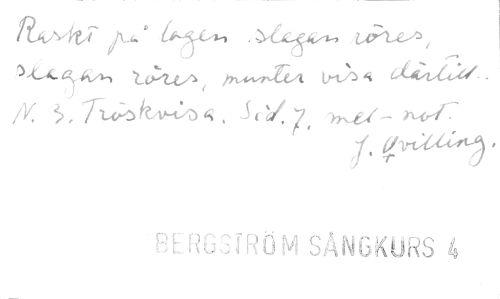 Raskt på logen slagan röres,
slagan röres, munter visa därtill.
N. 3. Tröskvisa. Sid. 7. mel-not.
J. Qvilling.
BERGSTRÖM SÅNGKURS 4